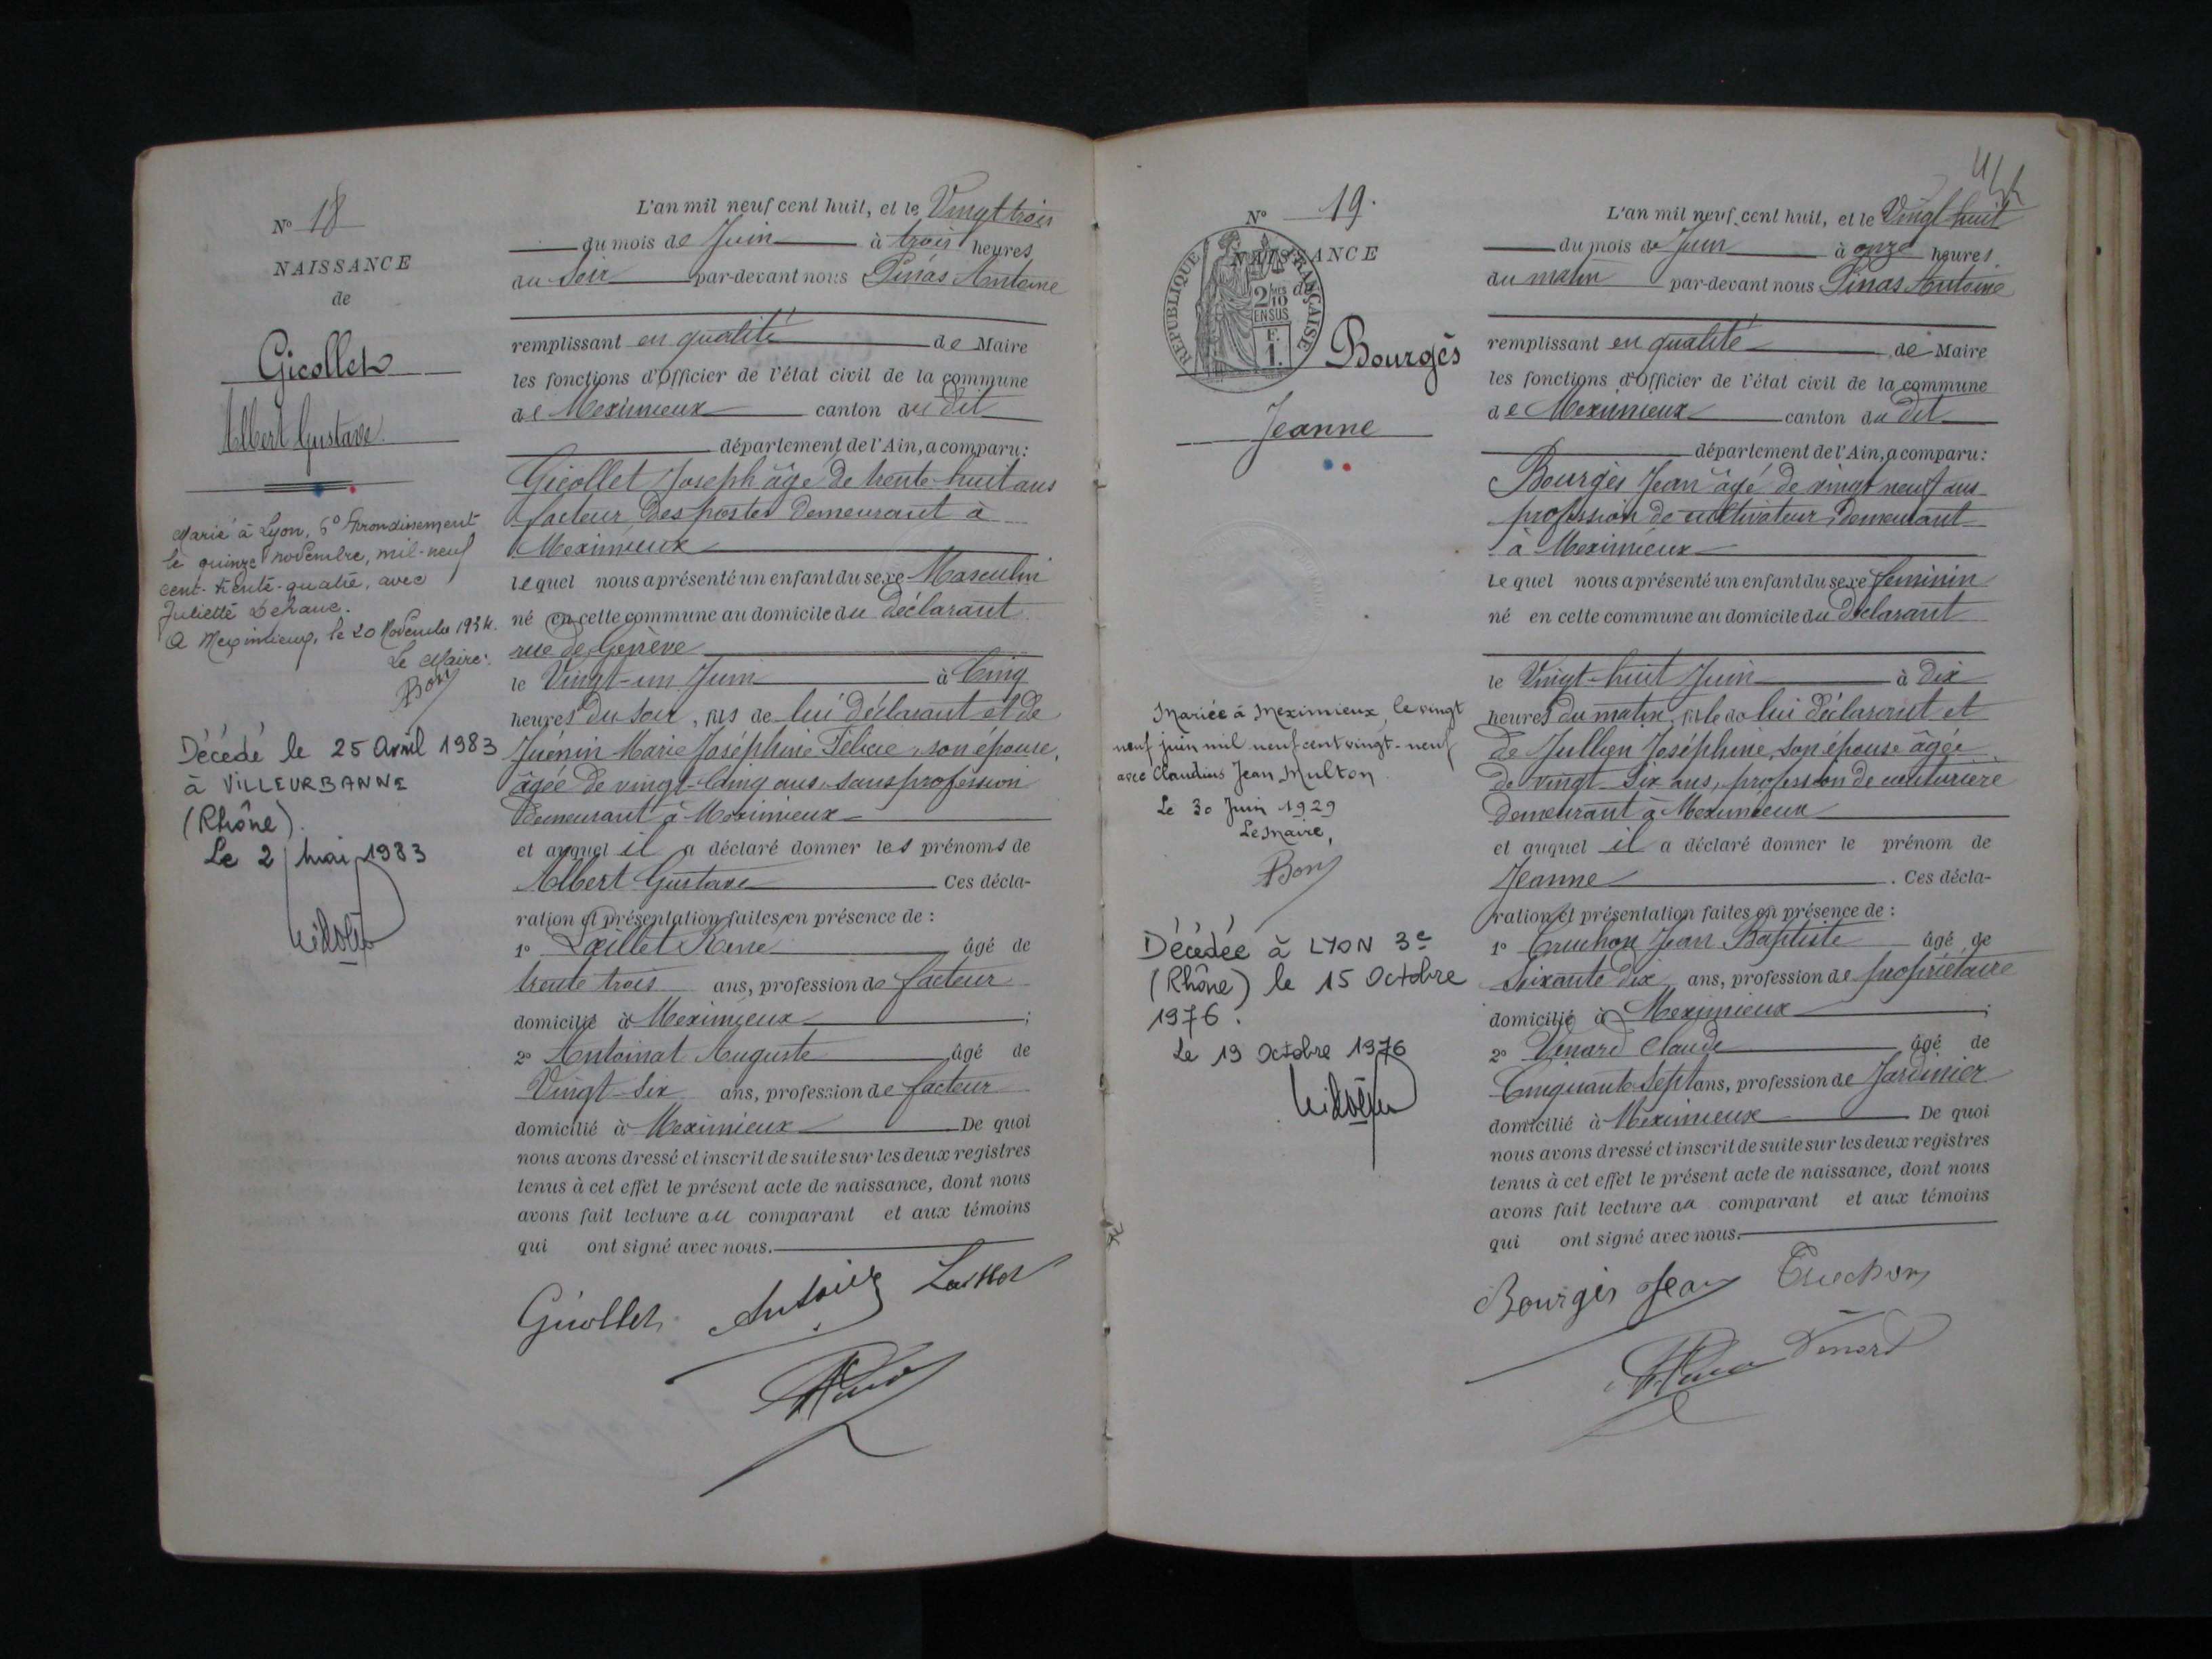 N° 18
NAISSANCE
de
Gicollet
Albert Gustave
Marié à Lyon, 6° Arrondissement
le quinze novembre, mil-neuf
cent-trente-quatre, avec
Juliette
A Meximieux, le 20 Novembre 1934.
Le Maire:
Bon
Décédé le 25 Avril 1983
à VILLEURBANNE
(Rhône).
Le 2 mai 1983
L'an mil neuf cent huit, et le Vingt trois
du mois de Juin à trois heures
du Soir par-devant nous Pinas Antoine
remplissant en qualité de Maire
les fonctions d'Officier de l'état civil de la commune
de Meximieux canton du dit
département de l'Ain, a comparu:
Gicollet Joseph âgé de trente-huit ans
facteur des postes demeurant à
Meximieux
lequel nous a présenté un enfant du sexe Masculin
né en cette commune au domicile du déclarant
rue de Genève
le Vingt-un Juin à Cinq
heures du soir, fils de lui déclarant et de
Juénin Marie Joséphine Félicie, son épouse,
âgée de vingt-cinq ans, sans profession
demeurant à Meximieux
et auquel il a déclaré donner les prénoms de
Albert Gustave Ces décla-
ration et présentation faites en présence de :
1° Lœillet René âgé de
trente trois ans, profession de facteur
domicilié à Meximieux ;
2° Antoinat Auguste âgé de
Vingt-six ans, profession de facteur
domicilié à Meximieux De quoi
nous avons dressé et inscrit de suite sur les deux registres
tenus à cet effet le présent acte de naissance, dont nous
avons fait lecture au comparant et aux témoins
qui ont signé avec nous.
Gicollet
N° 19.
NAISSANCE
de
REPUBLIQUE FRANÇAISE
2/10 EN SUS
F. 1.
Bourgès
Jeanne
Mariée à Meximieux, le vingt
neuf juin mil neuf cent vingt-neuf
avec Claudius Jean Multon
Le 30 Juin 1929
Le Maire,
Bon
Décédée à LYON 3e
(Rhône) le 15 Octobre
1976.
Le 19 Octobre 1976
L'an mil neuf cent huit, et le Vingt huit
du mois de Juin à onze heures
du matin par-devant nous Pinas Antoine
remplissant en qualité de Maire
les fonctions d'Officier de l'état civil de la commune
de Meximieux canton du dit
département de l'Ain, a comparu:
Bourgès Jean âgé de vingt neuf ans
profession de cultivateur demeurant
à Meximieux
lequel nous a présenté un enfant du sexe féminin
né en cette commune au domicile du déclarant
le Vingt-huit Juin à Dix
heures du matin, fille de lui déclarant et
de Jullien Joséphine, son épouse âgée
de vingt-six ans, profession de couturière
demeurant à Meximieux
et auquel il a déclaré donner le prénom de
Jeanne . Ces décla-
ration et présentation faites en présence de :
1° Truchon Jean Baptiste âgé de
Soixante dix ans, profession de propriétaire
domicilié à Meximieux ;
2° Venard Claude âgé de
Cinquante sept ans, profession de Jardinier
domicilié à Meximieux De quoi
nous avons dressé et inscrit de suite sur les deux registres
tenus à cet effet le présent acte de naissance, dont nous
avons fait lecture au comparant et aux témoins
qui ont signé avec nous.
Bourgès Jean Truchon
Venard